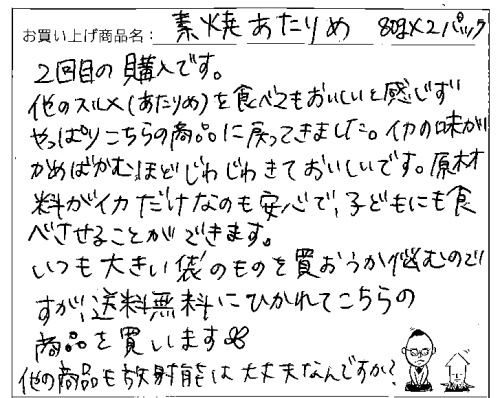 お買い上げ商品名： 素焼あたりめ 80g×2パック
2回目の購入です。
他のスルメ(あたりめ)を食べてもおいしいと感じず
やっぱりこちらの商品に戻ってきました。イカの味が
かめばかむほどじわじわきておいしいです。原材
料がイカだけなのも安心で、子どもにも食
べさせることができます。
いつも大きい袋のものを買おうか悩むので
すが、送料無料にひかれてこちらの
商品を買います
他の商品も放射能は大丈夫なんですか?